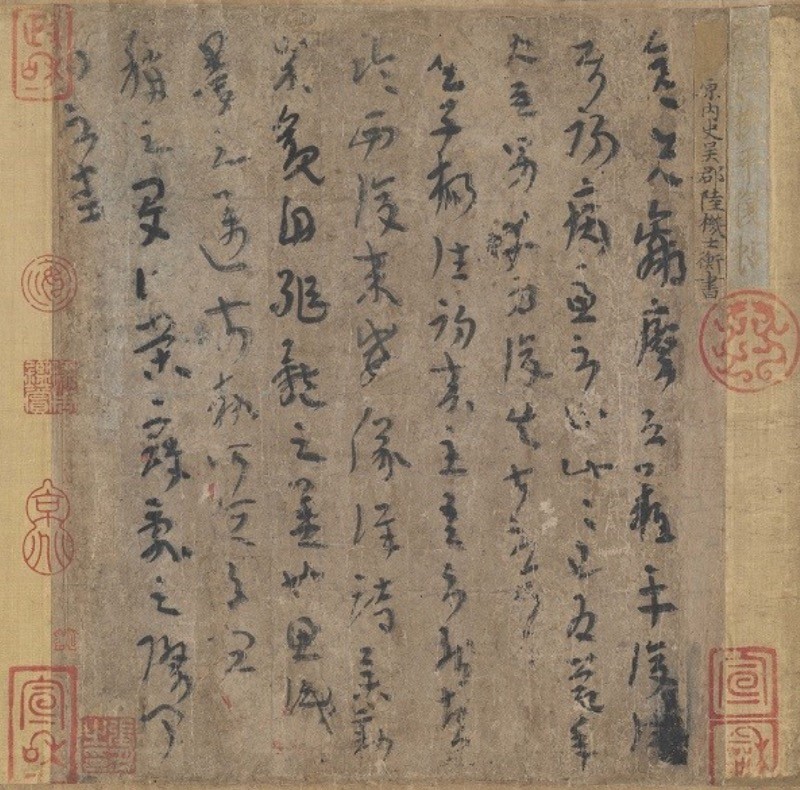 晉內史吳郡陸機士衡書
彦先羸瘵恐難平復往屬
初病慮不止此此已為慶承
使唯男幸為復失前憂耳
吳子楊往初來主吾不能盡
臨西復來威儀詳跱舉動
成觀自軀體之美也思識
量之邁前執所恒有宜
稱之夏伯榮寇亂之際聞
問不悉
政和
宣和
宣和